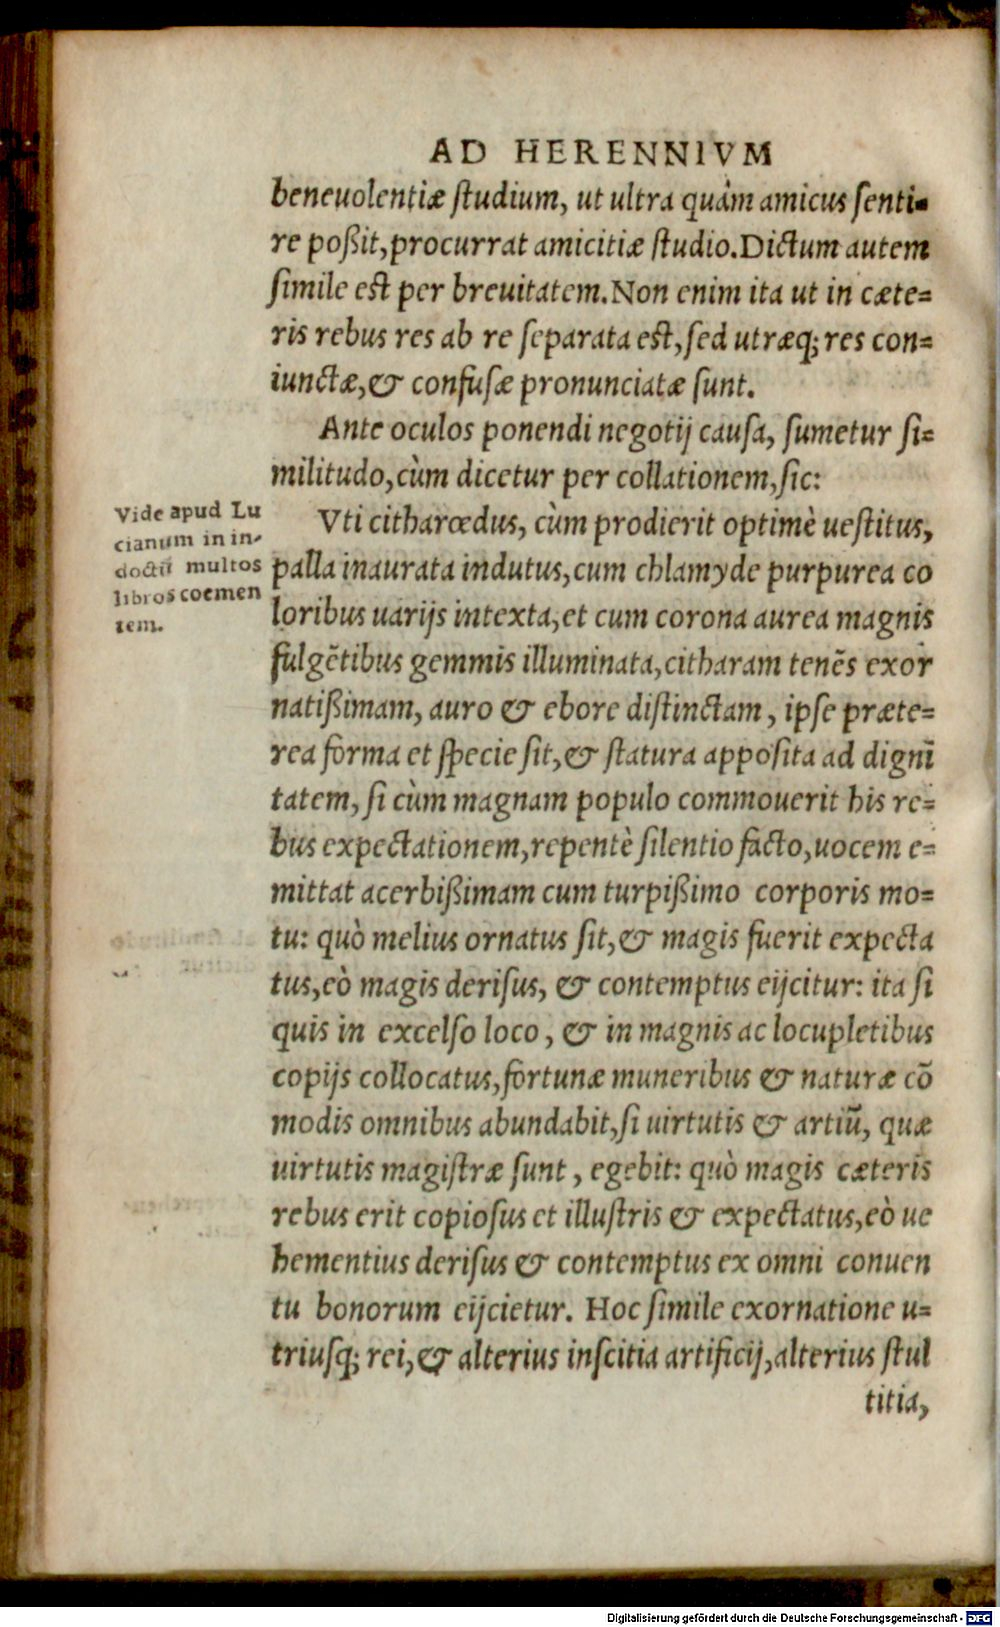 AD HERENNIVM
beneuolentiæ studium, ut ultra quàm amicus senti-
re poßit, procurrat amicitiæ studio. Dictum autem
simile est per breuitatem. Non enim ita ut in cæte=
ris rebus res ab re separata est, sed utræq; res con=
iunctæ, & confusæ pronunciatæ sunt.
Ante oculos ponendi negotij causa, sumetur si=
militudo, cùm dicetur per collationem, sic:
Vti citharœdus, cùm prodierit optimè uestitus,
palla inaurata indutus, cum chlamyde purpurea co
loribus uarijs intexta, et cum corona aurea magnis
fulgẽtibus gemmis illuminata, citharam tenẽs exor
natißimam, auro & ebore distinctam, ipse præte=
rea forma et specie sit, & statura apposita ad digni
tatem, si cùm magnam populo commouerit his re=
bus expectationem, repentè silentio facto, uocem e=
mittat acerbißimam cum turpißimo corporis mo=
tu: quò melius ornatus sit, & magis fuerit expecta
tus, eò magis derisus, & contemptus eijcitur: ita si
quis in excelso loco, & in magnis ac locupletibus
copijs collocatus, fortunæ muneribus & naturæ cõ
modis omnibus abundabit, si uirtutis & artiũ, quæ
uirtutis magistræ sunt, egebit: quò magis cæteris
rebus erit copiosus et illustris & expectatus, eò ue
hementius derisus & contemptus ex omni conuen
tu bonorum eijcietur. Hoc simile exornatione u=
triusq; rei, & alterius inscitia artificij, alterius stul
titia,
Vide apud Lu
cianum in in-
doctū multos
libros coemen
tem.
Digitalisierung gefördert durch die Deutsche Forschungsgemeinschaft - DFG